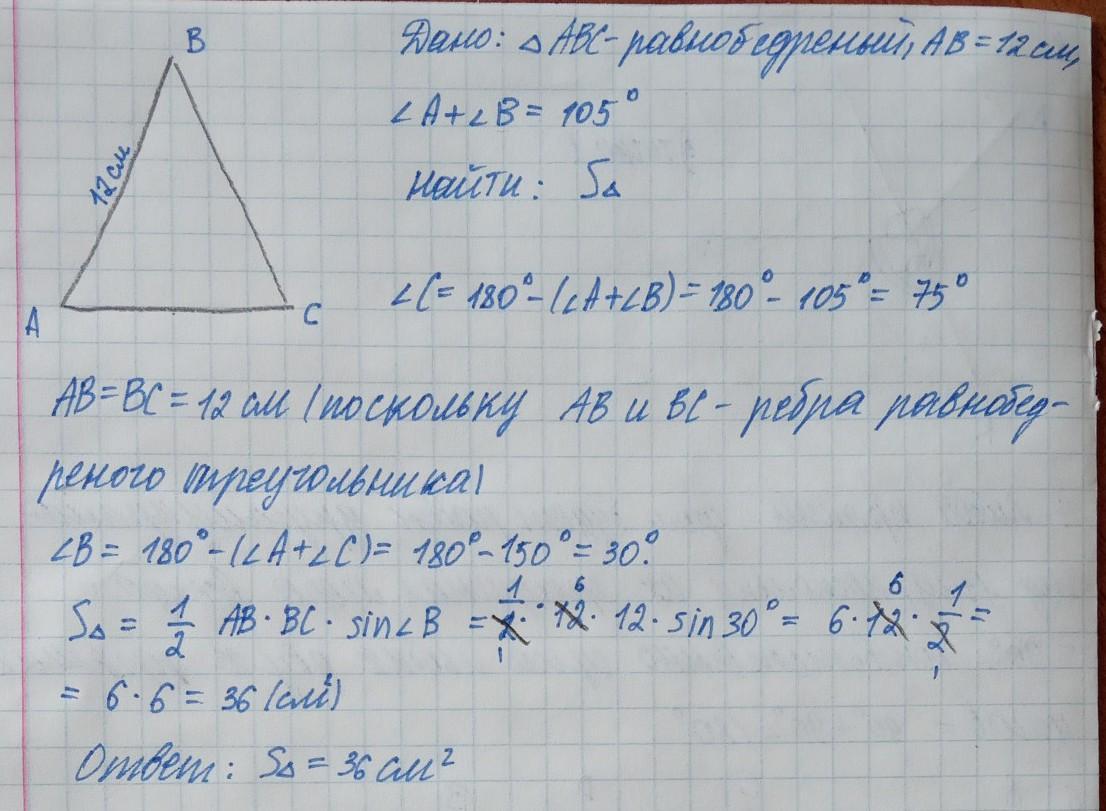 B
Дано: △ABC-равнобедреный, AB=12см,
∠A+∠B= 105°
12см
Найти: S△
A
C
∠C= 180°-(∠A+∠B)=180°- 105°= 75°
AB=BC=12 см (поскольку AB и BC- ребра равнобед-
реного треугольника)
∠B= 180°-(∠A+∠C)= 180°-150°= 30°.
S△ = 1/2 AB·BC· sin∠B = 1/2 · 12 · 12· sin30°= 6·12 · 1/2 =
= 6·6= 36 (см²)
Ответ: S△=36см²